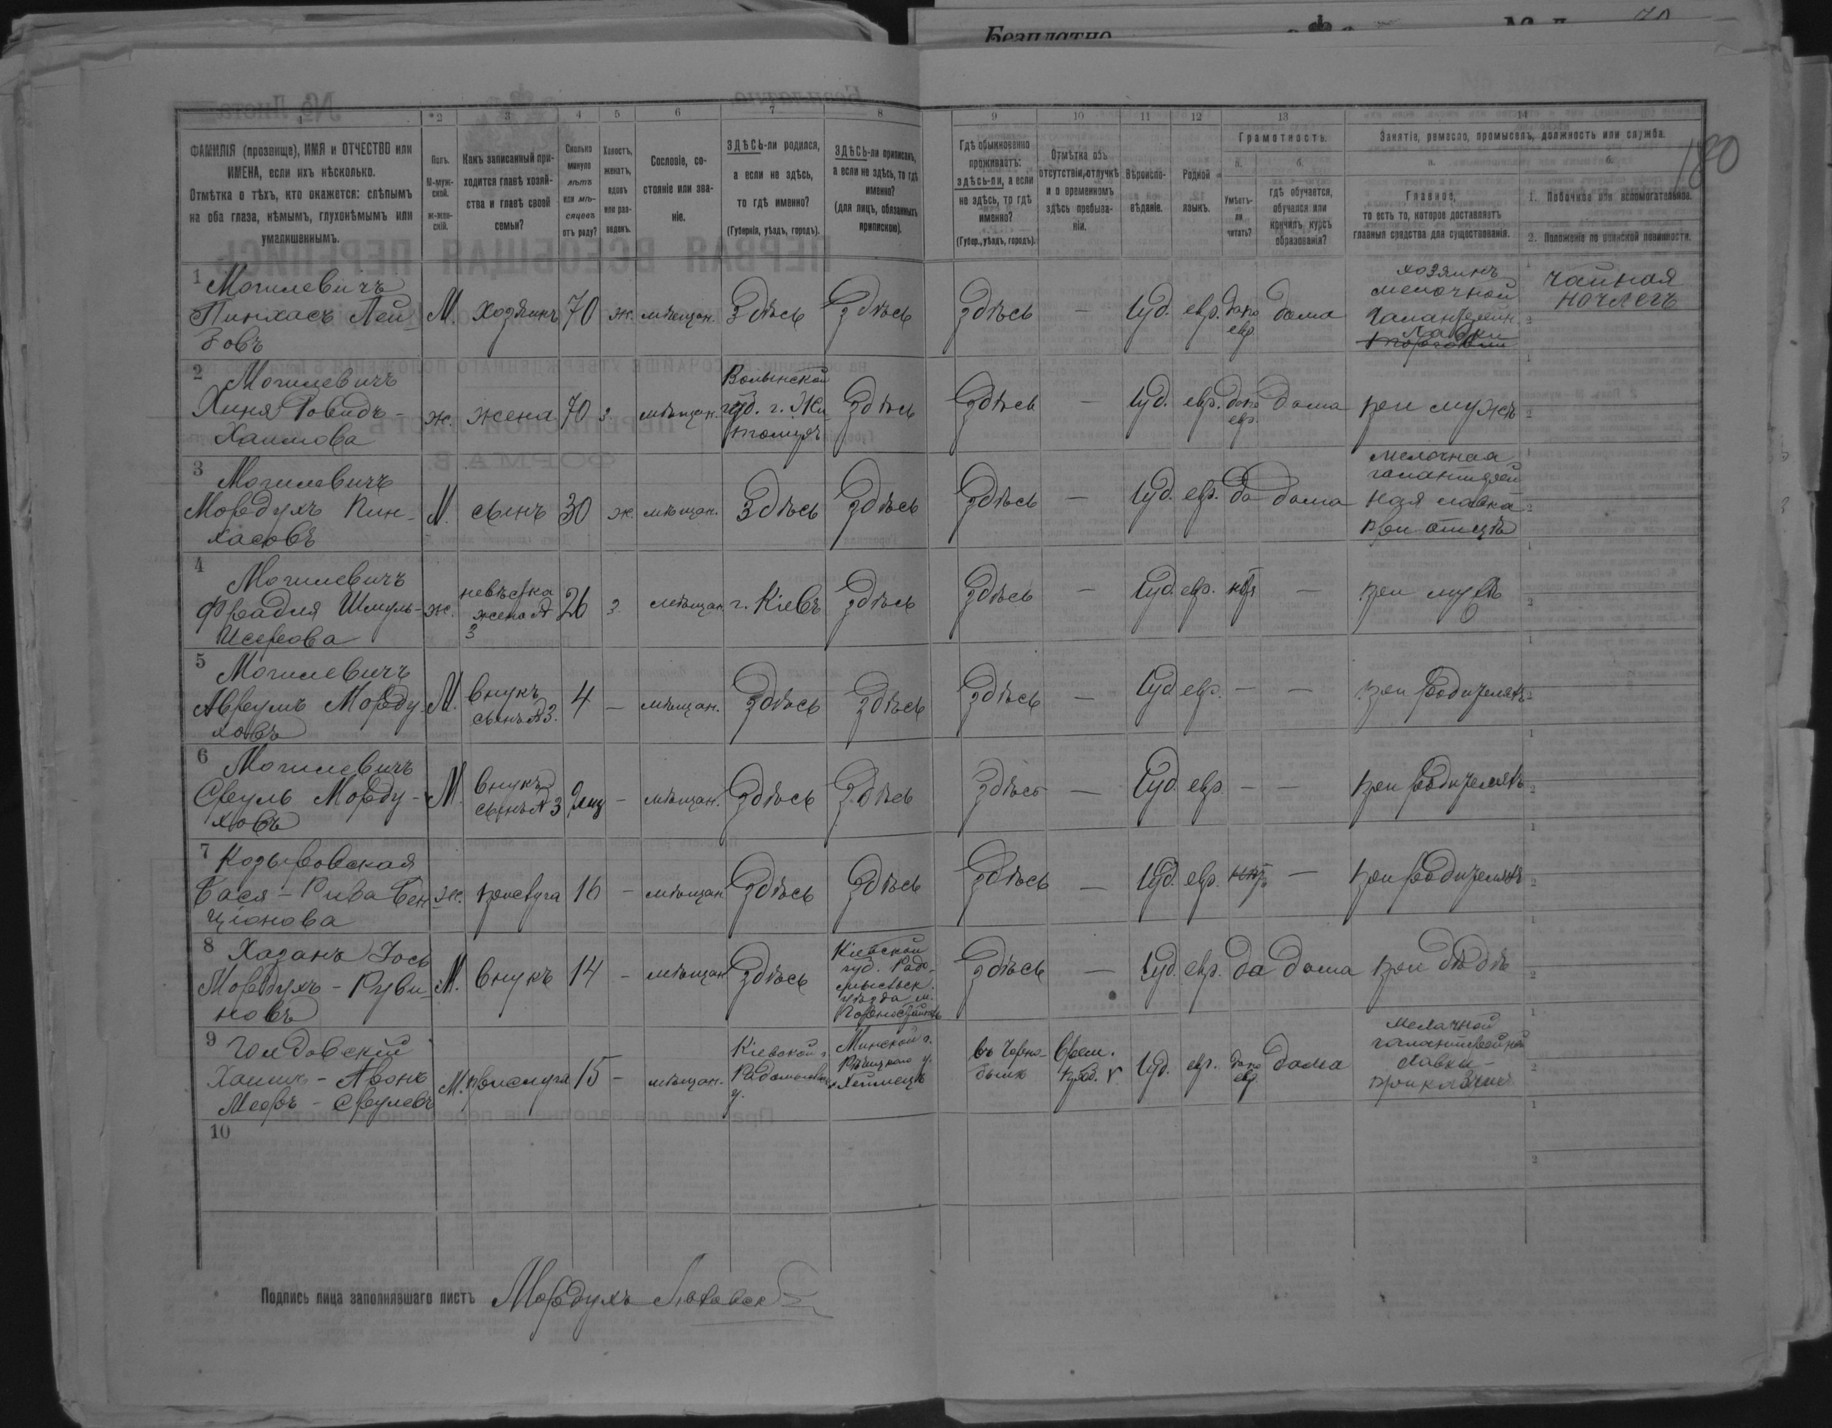 Безплатно
180
1 2 3 4 5 6 7 8 9 10 11 12 13 14
ФАМИЛІЯ (прозвище), ИМЯ и ОТЧЕСТВО или ИМЕНА, если ихъ нѣсколько.
Отмѣтка о тѣхъ, кто окажется: слѣпымъ на оба глаза, нѣмымъ, глухонѣмымъ или умалишеннымъ.
Полъ. М-мужской. ж-женскій.
Какъ записанный приходится главѣ хозяйства и главѣ своей семьи?
Сколько минуло лѣтъ или мѣсяцевъ отъ роду?
Холостъ, женатъ, вдовъ или разведенъ.
Сословіе, состояніе или званіе.
ЗДѢСЬ-ли родился, а если не здѣсь, то гдѣ именно?
(Губернія, уѣздъ, городъ).
ЗДѢСЬ-ли приписанъ, а если не здѣсь, то гдѣ именно?
(для лицъ, обязанныхъ припискою).
Гдѣ обыкновенно проживаетъ: здѣсь-ли, а если не здѣсь, то гдѣ именно?
(Губер., уѣздъ, городъ).
Отмѣтка объ отсутствіи, отлучкѣ и о временномъ здѣсь пребываніи.
Вѣроисповѣданіе.
Родной языкъ.
Грамотность.
Умѣетъ-ли читать?
б.
гдѣ обучается, обучался или кончилъ курсъ образованія?
Занятіе, ремесло, промыселъ, должность или служба.
а.
Главное,
то есть то, которое доставляетъ главныя средства для существованія.
б.
1. Побочное или вспомогательное.
2. Положеніе по воинской повинности.
1 Могилевичъ Пинхасъ Лейзовъ М. хозяинъ 70 ж. мѣщан. Здѣсь Здѣсь Здѣсь — Іуд. евр. да по евр. дома хозяинъ мелочной галантерейн. лавки чайная ночлегъ
2 Могилевичъ Хиня Ровидъ-Хаимова ж. жена 70 з. мѣщан. Волынской губ. г. Житомиръ Здѣсь Здѣсь — Іуд. евр. да по евр. дома при мужѣ
3 Могилевичъ Мордухъ Пинхасовъ М. сынъ 30 ж. мѣщан. Здѣсь Здѣсь Здѣсь — Іуд. евр. да дома мелочная галантерейная лавка при отцѣ
4 Могилевичъ Фрадля Шмуль-Исерова ж. невѣстка жена № 3 26 з. мѣщан. г. Кіевъ Здѣсь Здѣсь — Іуд. евр. — при мужѣ
5 Могилевичъ Аврумъ Мордуховъ М. внукъ сынъ № 3. 4 — мѣщан. Здѣсь Здѣсь Здѣсь — Іуд. евр. — — при родителяхъ
6 Могилевичъ Сруль Мордуховъ М. внукъ сынъ № 3 мѣщан. Здѣсь Здѣсь Здѣсь — Іуд. евр. — — при родителяхъ
7 Бася-Рива Бенціонова ж. прислуга 16 — мѣщан. Здѣсь Здѣсь Здѣсь — Іуд. евр. — при родителяхъ
8 Хазанъ Іось Мордухъ-Рувиновъ М. внукъ 14 — мѣщан. Здѣсь Кіевской губ. Радомысльск. уѣзда м. Здѣсь — Іуд. евр. да дома при дѣдѣ
9 Голдовскій Хаимъ-Аронъ Меоръ-Срулевъ М. прислуга 15 — мѣщан. Кіевской г. Радомысльск. у. Минской г. Рѣчицкаго у. въ Чернобылѣ Врем. преб. Іуд. евр. да по евр. дома мелочной галантерейной лавки прикащикъ
10
Подпись лица заполнявшаго листъ Мордухъ